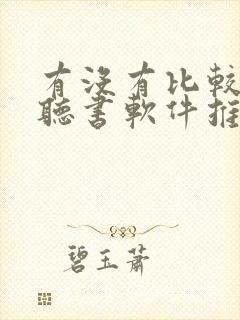 有没有比較
聽書軟件推
碧玉蕭